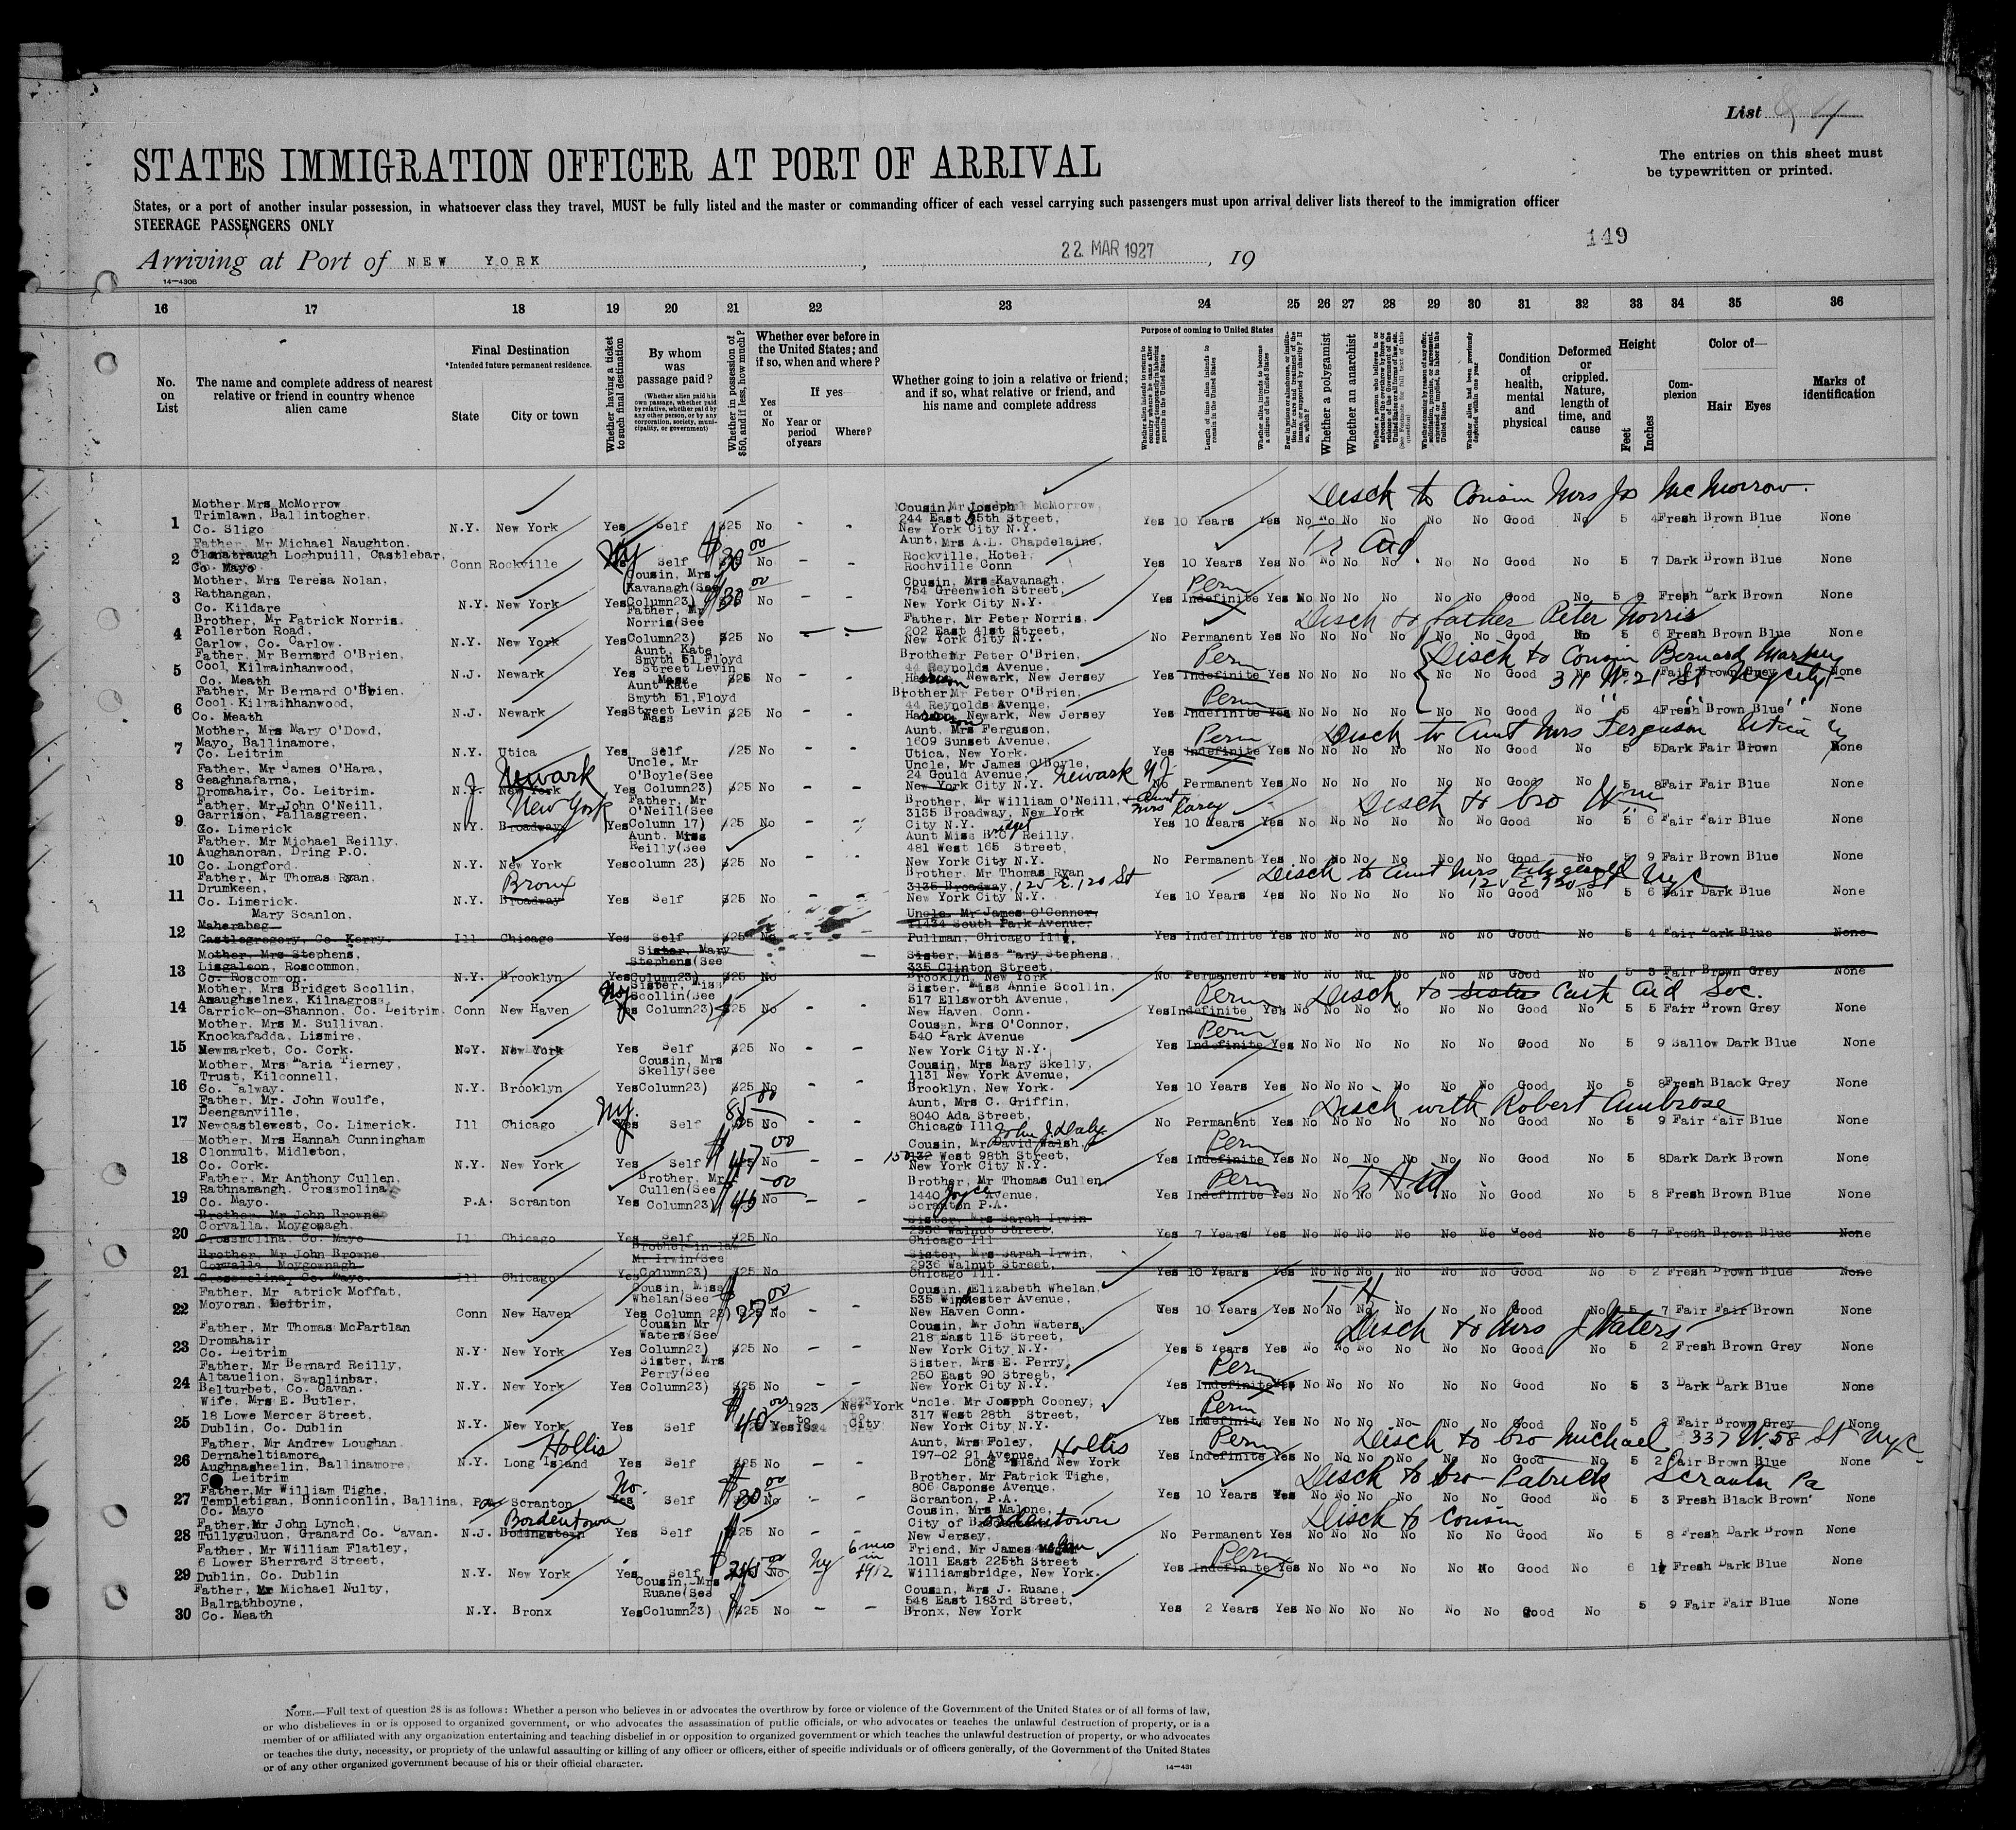 List
STATES IMMIGRATION OFFICER AT PORT OF ARRIVAL
The entries on this sheet must
be typewritten or printed.
States, or a port of another insular possession, in whatsoever class they travel, MUST be fully listed and the master or commanding officer of each vessel carrying such passengers must upon arrival deliver lists thereof to the immigration officer
STEERAGE PASSENGERS ONLY
149
Arriving at Port of NEW YORK, 22 MAR 1927, 19
14—4306
16 17 18 19 20 21 22 23 24 25 26 27 28 29 30 31 32 33 34 35 36
No. on List
The name and complete address of nearest relative or friend in country whence alien came
Final Destination
*Intended future permanent residence.
State
City or town
Whether having a ticket to such final destination
By whom was passage paid?
(Whether alien paid his own passage, whether paid by relative, whether paid by any other person, or by any corporation, society, municipality, or government)
Whether in possession of $50, and if less, how much?
Whether ever before in the United States; and if so, when and where?
Yes or No
If yes—
Year or period of years
Where?
Whether going to join a relative or friend; and if so, what relative or friend, and his name and complete address
Purpose of coming to United States
Length of time alien intends to remain in the United States
Whether alien intends to become a citizen of the United States
Whether a polygamist
Whether an anarchist
Whether alien had been previously deported within one year
Condition of health, mental and physical
Deformed or crippled. Nature, length of time, and cause
Height
Feet
Inches
Complexion
Color of—
Hair
Eyes
Marks of identification
Disch to Cousin Mrs Jos McMorrow.
1 Mother Mrs McMorrow Trimlawn, Ballintogher, Co. Sligo N.Y. New York Yes Self $25 No - - Cousin, Mr Joseph McMorrow, 244 East 55th Street, New York City N.Y. Yes 10 Years Yes No No No No No No Good No 5 4 Fresh Brown Blue None
2 Father, Mr Michael Naughton. Clonatraugh Loghpuill, Castlebar, Co. Mayo Conn Rockville Self $30 00 No - - Aunt, Mrs A.L. Chapdelaine, Rockville, Hotel, Rochville Conn Yes 10 Years Yes No No No No No No Good No 5 7 Dark Brown Blue None
3 Mother, Mrs Teresa Nolan, Rathangan, Co. Kildare N.Y. New York Yes Cousin, Mrs Kavanagh(See Column23) $30 00 No - - Cousin, Mrs Kavanagh, 754 Greenwich Street, New York City N.Y. Yes Indefinite Perm Yes No No No No No No Good No 5 Fresh Dark Brown None
Disch to father Peter Norris
4 Brother, Mr Patrick Norris. Pollerton Road, Carlow, Co. Carlow. N.Y. New York Yes Father, Mr Norris(See Column23) $25 No Father, Mr Peter Norris, 202 East 41st Street, New York City N.Y. No Permanent Yes No No No No No No Good No 5 6 Fresh Brown Blue None
Disch to Cousin Bernard Markey
311 W. 21 St NyCity
5 Father, Mr Bernard O'Brien, Cool, Kilmainhanwood, Co. Meath N.J. Newark Yes Aunt, Kate Smyth 51 Floyd Street Levin Mass $25 No - - Brother Mr Peter O'Brien, 44 Reynolds Avenue, Newark, New Jersey Yes Indefinite Perm Yes No No No No No No Good No 5 Fair Brown Grey None
6 Father, Mr Bernard O'Brien, Cool Kilmaihhanwood, Co. Meath N.J. Newark Yes Aunt Kate Smyth 51,Floyd Street Levin Mass $25 No - - Brother Mr Peter O'Brien, 44 Reynolds Avenue, Newark, New Jersey Yes Indefinite Perm Yes No No No No No No Good No 5 4 Fresh Brown Blue None
Disch to Aunt Mrs Ferguson Utica Ny
7 Mother, Mrs Mary O'Dowd, Mayo, Ballinamore, Co. Leitrim N.Y. Utica Yes Self $25 No - - Aunt, Mrs Ferguson, 1609 Sunset Avenue, Utica, New York. Yes Indefinite Perm Yes No No No No No No Good No 5 5 Dark Fair Brown None
8 Father, Mr James O'Hara, Geaghnafarna, Dromahair, Co. Leitrim. N.J. New York Newark Yes Uncle, Mr O'Boyle(See Column23) $25 No - - Uncle, Mr James O'Boyle, 24 Gould Avenue, New York City N.Y. Newark NJ No Permanent Yes No No No No No No Good No 5 8 Fair Fair Blue None
Disch to bro Wm
9 Father, Mr John O'Neill, Garrison, Pallasgreen, Co. Limerick N.Y. Broadway New York Yes Father, Mr O'Neill(See Column 17) $25 No - Brother, Mr William O'Neill, + Aunt Mrs Carey 3135 Broadway, New York City N.Y. Yes 10 Years Yes No No No No No No Good No 5 6 Fair Fair Blue None
10 Father, Mr Michael Reilly, Aughanoran, Dring P.O. Co. Longford. N.Y. New York Yes Aunt, Miss Reilly(See column 23) $25 No - - Aunt Miss Reilly, 481 West 165 Street, New York City N.Y. No Permanent Yes No No No No No No Good No 5 9 Fair Brown Blue None
Disch to Aunt Mrs Fitzgerald 125 E 120 St NyC
11 Father, Mr Thomas Ryan, Drumkeen, Co. Limerick. N.Y. Broadway Bronx Yes Self $25 No - - Brother, Mr Thomas Ryan 3135 Broadway, 125 E. 120 St New York City N.Y. Yes 10 Years Yes No No No No No No Good No 5 6 Fair Dark Blue None
12 Mary Scanlon, Maherabeg Castlegregory, Co. Kerry. Ill Chicago Yes Self $25 No Uncle, Mr James O'Connor, 11434 South Park Avenue, Pullman, Chicago Ill. Yes Indefinite Yes No No No No No No Good No 5 4 Fair Dark Blue None
13 Mother, Mrs Stephens, Lisgaleon, Roscommon, Co. Roscommon. N.Y. Brooklyn Yes Sister, Mary Stephens(See Column23) $25 No Sister, Miss Mary Stephens, 335 Clinton Street, Brooklyn New York No Permanent Yes No No No No No No Good No 5 3 Fair Brown Grey None
Disch to sister Cath Aid Soc.
14 Mother, Mrs Bridget Scollin, Amaughselnez, Kilnagross, Carrick-on-Shannon, Co. Leitrim. Conn New Haven Yes Sister, Miss Scollin(See Column23) $25 No - - Sister, Miss Annie Scollin, 517 Ellsworth Avenue, New Haven, Conn. Yes Indefinite Perm Yes No No No No No No Good No 5 5 Fair Brown Grey None
15 Mother, Mrs M. Sullivan, Knockafadda, Lismire, Newmarket, Co. Cork. N.Y. New York Yes Self $25 No - - Cousen, Mrs O'Connor, 540 Park Avenue New York City N.Y. Yes Indefinite Perm Yes No No No No No No Good No 5 9 Sallow Dark Blue None
16 Mother, Mrs Maria Tierney, Trust, Kilconnell, Co. Galway. N.Y. Brooklyn Yes Cousin, Mrs Skelly(See Column23) $25 No - - Cousin, Mrs Mary Skelly, 1131 New York Avenue, Brooklyn, New York. Yes 10 Years Yes No No No No No No Good No 5 8 Fresh Black Grey None
Disch with Robert Ambrose
17 Father, Mr. John Woulfe, Deenganville, Newcastlewest, Co. Limerick. Ill Chicago Yes Self 85 00 No - - Aunt, Mrs C. Griffin, 8040 Ada Street, Chicago Ill No Permanent Yes No No No No No No Good No 5 9 Fair Fair Blue None
18 Mother, Mrs Hannah Cunningham Clonmult, Midleton, Co. Cork. N.Y. New York Yes Self $47 00 No - - Cousin, Mr David Walsh, John J Daly West 98th Street, New York City N.Y. Yes Indefinite Perm Yes No No No No No No Good No 5 8 Dark Dark Brown None
19 Father, Mr Anthony Cullen, Rathnamangh, Crossmolina, Co. Mayo. P.A. Scranton Yes Brother, Mr Cullen(See Column23) $45 00 No - - Brother, Mr Thomas Cullen 1440 Joyce Avenue, Scranton P.A. Yes Indefinite Perm Yes No No No No No No Good No 5 8 Fresh Brown Blue None
20 Brother, Mr John Browne Corvalla, Moygonagh, Crossmolina, Co. Mayo Ill Chicago Yes Self $25 No Sister, Mrs Sarah Irwin 2936 Walnut Street, Chicago Ill Yes 7 Years Yes No No No No No No Good No 5 7 Fresh Brown Blue None
21 Brother, Mr John Browne, Corvalla, Moygownagh, Crossmolina, Co. Mayo. Ill Chicago Yes Brother-in-law Mr Irwin(See Column23) $25 No Sister, Mrs Sarah Irwin, 2936 Walnut Street, Chicago Ill. Yes 10 Years Yes No No No No No No Good No 5 2 Fresh Brown Blue None
22 Father, Mr Patrick Moffat, Moyoran, Leitrim, Conn New Haven Yes Cousin, Miss Whelan(See Column 23) $27 00 No - - Cousin, Elizabeth Whelan, 535 Winchester Avenue, New Haven Conn. Yes 10 Years Yes No No No No No No Good No 5 7 Fair Fair Brown None
Disch to Mrs J Waters
23 Father, Mr Thomas McPartlan Dromahair Co. Leitrim N.Y. New York Yes Cousin Mr Waters(See Column23) $25 No - - Cousin, Mr John Waters, 218 East 115 Street, New York City N.Y. Yes 5 Years Yes No No No No No No Good No 5 2 Fresh Brown Grey None
24 Father, Mr Bernard Reilly, Altauelion, Swanlinbar, Belturbet, Co. Cavan. N.Y. New York Yes Sister, Mrs Perry(See Column23) $25 No - - Sister, Mrs E. Perry, 250 East 90 Street, New York City N.Y. Yes Indefinite Perm Yes No No No No No No Good No 5 3 Dark Dark Blue None
25 Wife, Mrs E. Butler, 18 Lowe Mercer Street, Dublin, Co. Dublin N.Y. New York Yes Self $40 00 Yes 1923 to 1924 New York City Uncle, Mr Joseph Cooney, 317 West 28th Street, New York City N.Y. Yes Indefinite Perm Yes No No No No No No Good No 5 Fair Brown Grey None
Disch to bro Michael 337 W. 58 St NyC
26 Father, Mr Andrew Loughan Dernaheltiamore, Aughnasheelin, Ballinamore, Co Leitrim N.Y. Long Island Hollis Yes Self $25 No - - Aunt, Mrs Foley, 197-02 91 Avenue, Hollis Long Island New York Yes Indefinite Perm Yes No No No No No No Good No 5 2 Fair Brown Blue None
Disch to bro Patrick Scranton Pa
27 Father, Mr William Tighe, Templetigan, Bonniconlin, Ballina, Co. Mayo Pa Scranton No. Yes Self $30 00 No - - Brother, Mr Patrick Tighe, 806 Caponse Avenue, Scranton, P.A. Yes 10 Years Yes No No No No No No Good No 5 3 Fresh Black Brown None
Disch to Cousin
28 Father, Mr John Lynch, Tullyguluon, Granard Co. Cavan. N.J. Bodingstein Bordentown Yes Self $25 No - - Cousin, Mrs Malone, City of Bordentown New Jersey, No Permanent Yes No No No No No No Good No 5 8 Fresh Dark Brown None
29 Father, Mr William Flatley, 6 Lower Sherrard Street, Dublin, Co. Dublin N.Y. New York Yes Self No Ny 6 mo in 1912 Friend, Mr James 1011 East 225th Street Williamsbridge, New York. Yes Indefinite Perm Yes No No No No No No Good No 6 1½ Fresh Dark Blue None
30 Father, Mr Michael Nulty, Balrathboyne, Co. Meath N.Y. Bronx Yes Cousin, Mrs Ruane(See Column23) $25 No - - Cousin, Mrs J. Ruane, 548 East 183rd Street, Bronx, New York Yes 2 Years Yes No No No No No No Good No 5 9 Fair Fair Blue None
NOTE.—Full text of question 28 is as follows: Whether a person who believes in or advocates the overthrow by force or violence of the Government of the United States or of all forms of law,
or who disbelieves in or is opposed to organized government, or who advocates the assassination of public officials, or who advocates or teaches the unlawful destruction of property, or is a
member of or affiliated with any organization entertaining and teaching disbelief in or opposition to organized government or which teaches the unlawful destruction of property, or who advocates
or teaches the duty, necessity, or propriety of the unlawful assaulting or killing of any officer or officers, either of specific individuals or of officers generally, of the Government of the United States
or of any other organized government because of his or their official character.
14—431